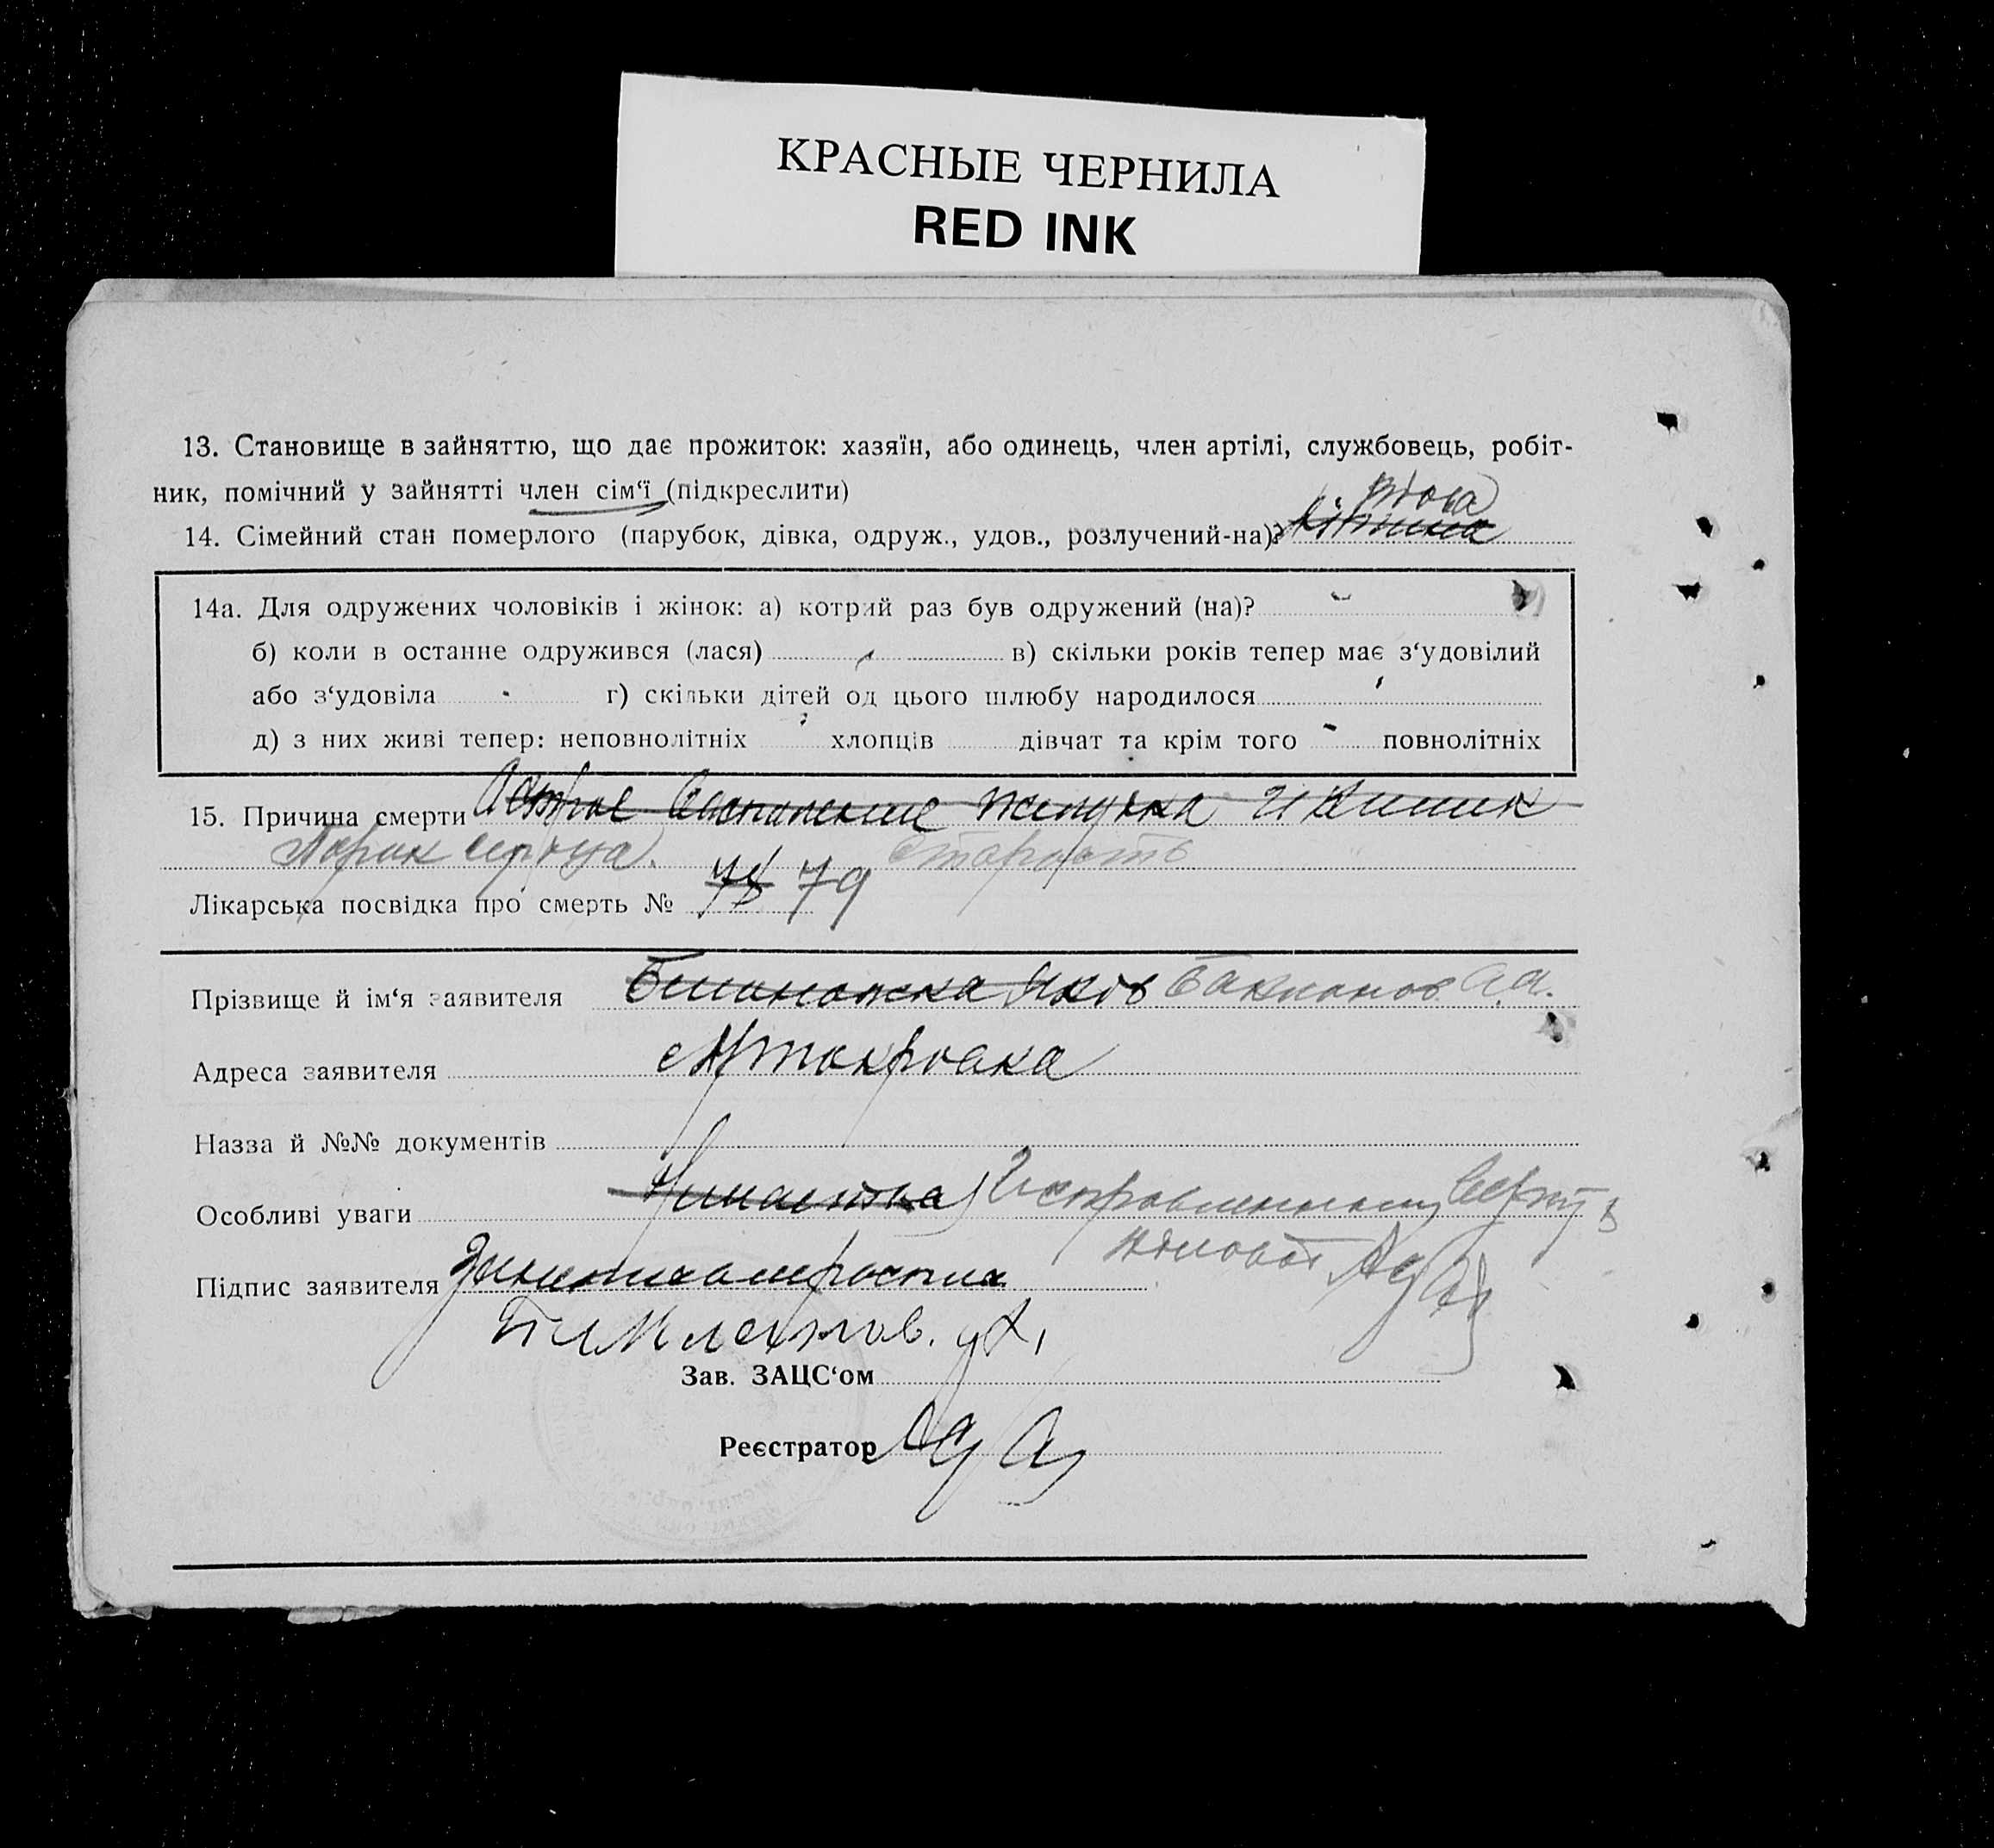 КРАСНЫЕ ЧЕРНИЛА
RED INK
13. Становище в зайняттю, що дає прожиток: хазяїн, або одинець, член артілі, службовець, робіт-
ник, помічний у зайнятті член сім‘ї (підкреслити)
вдова
14. Сімейний стан померлого (парубок, дівка, одруж., удов., розлучений-на)?
14а. Для одружених чоловіків і жінок: а) котрий раз був одружений (на)?
б) коли в останне одружився (лася) в) скільки років тепер має з‘удовілий
або з‘удовіла г) скільки дітей од цього шлюбу народилося
д) з них живі тепер: неповнолітніх хлопців дівчат та крім того повнолітніх
15. Причина смерти Острое воспаление желудка и кишик
Порок сердца. старость
Лікарська посвідка про смерть № 78 79
Прізвище й ім‘я заявителя Яков Бакланов А.А.
Адреса заявителя
Назва й №№ документів
Особливі уваги Исправленному верить
Підпис заявителя
Зав. ЗАЦС‘ом
Реєстратор